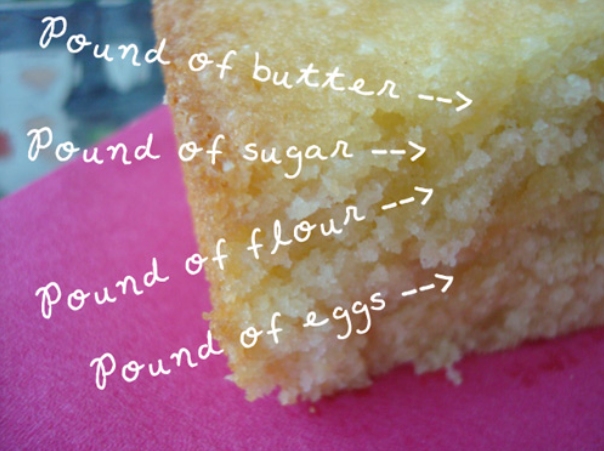 Pound of butter -->
Pound of sugar -->
Pound of flour -->
Pound of eggs -->